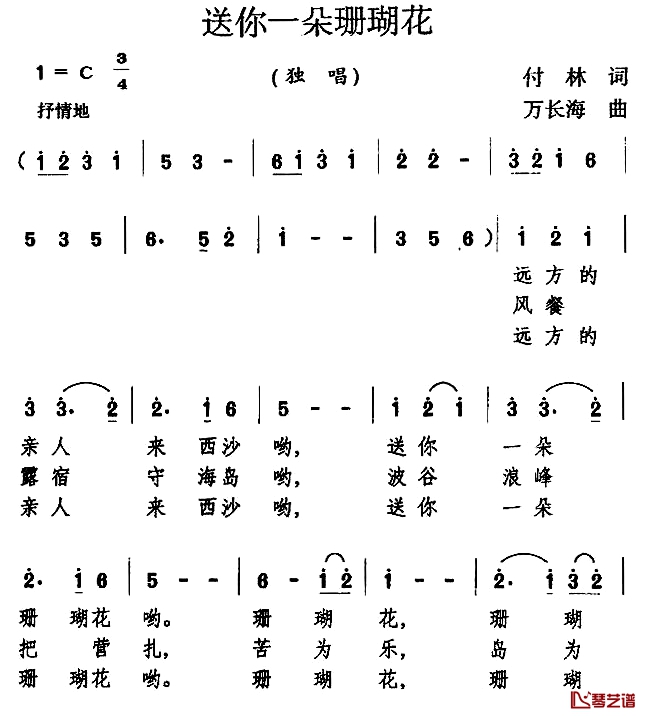 送你一朵珊瑚花
1 = C 3/4 (独 唱) 付 林 词
抒情地 万长海 曲
( 1 2 3 1 | 5 3 - | 6 1 3 1 | 2 2 - | 3 2 1 6 |
5 3 5 | 6. 5 2 | 1 - - | 3 5 6 ) | 1 2 1 |
远方的
风餐
远方的
3 3. 2 | 2. 1 6 | 5 - - | 1 2 1 | 3 3. 2 |
亲人 来 西沙 哟, 送你 一朵
露宿 守 海岛 哟, 波谷 浪峰
亲人 来 西沙 哟, 送你 一朵
2. 1 6 | 5 - - | 6 - 1 2 | 5 - - | 2. 1 3 2 |
珊 瑚花 哟。 珊 瑚 花, 珊 瑚
把 营 扎, 苦 为 乐, 岛 为
珊 瑚花 哟。 珊 瑚 花, 珊 瑚
琴艺谱